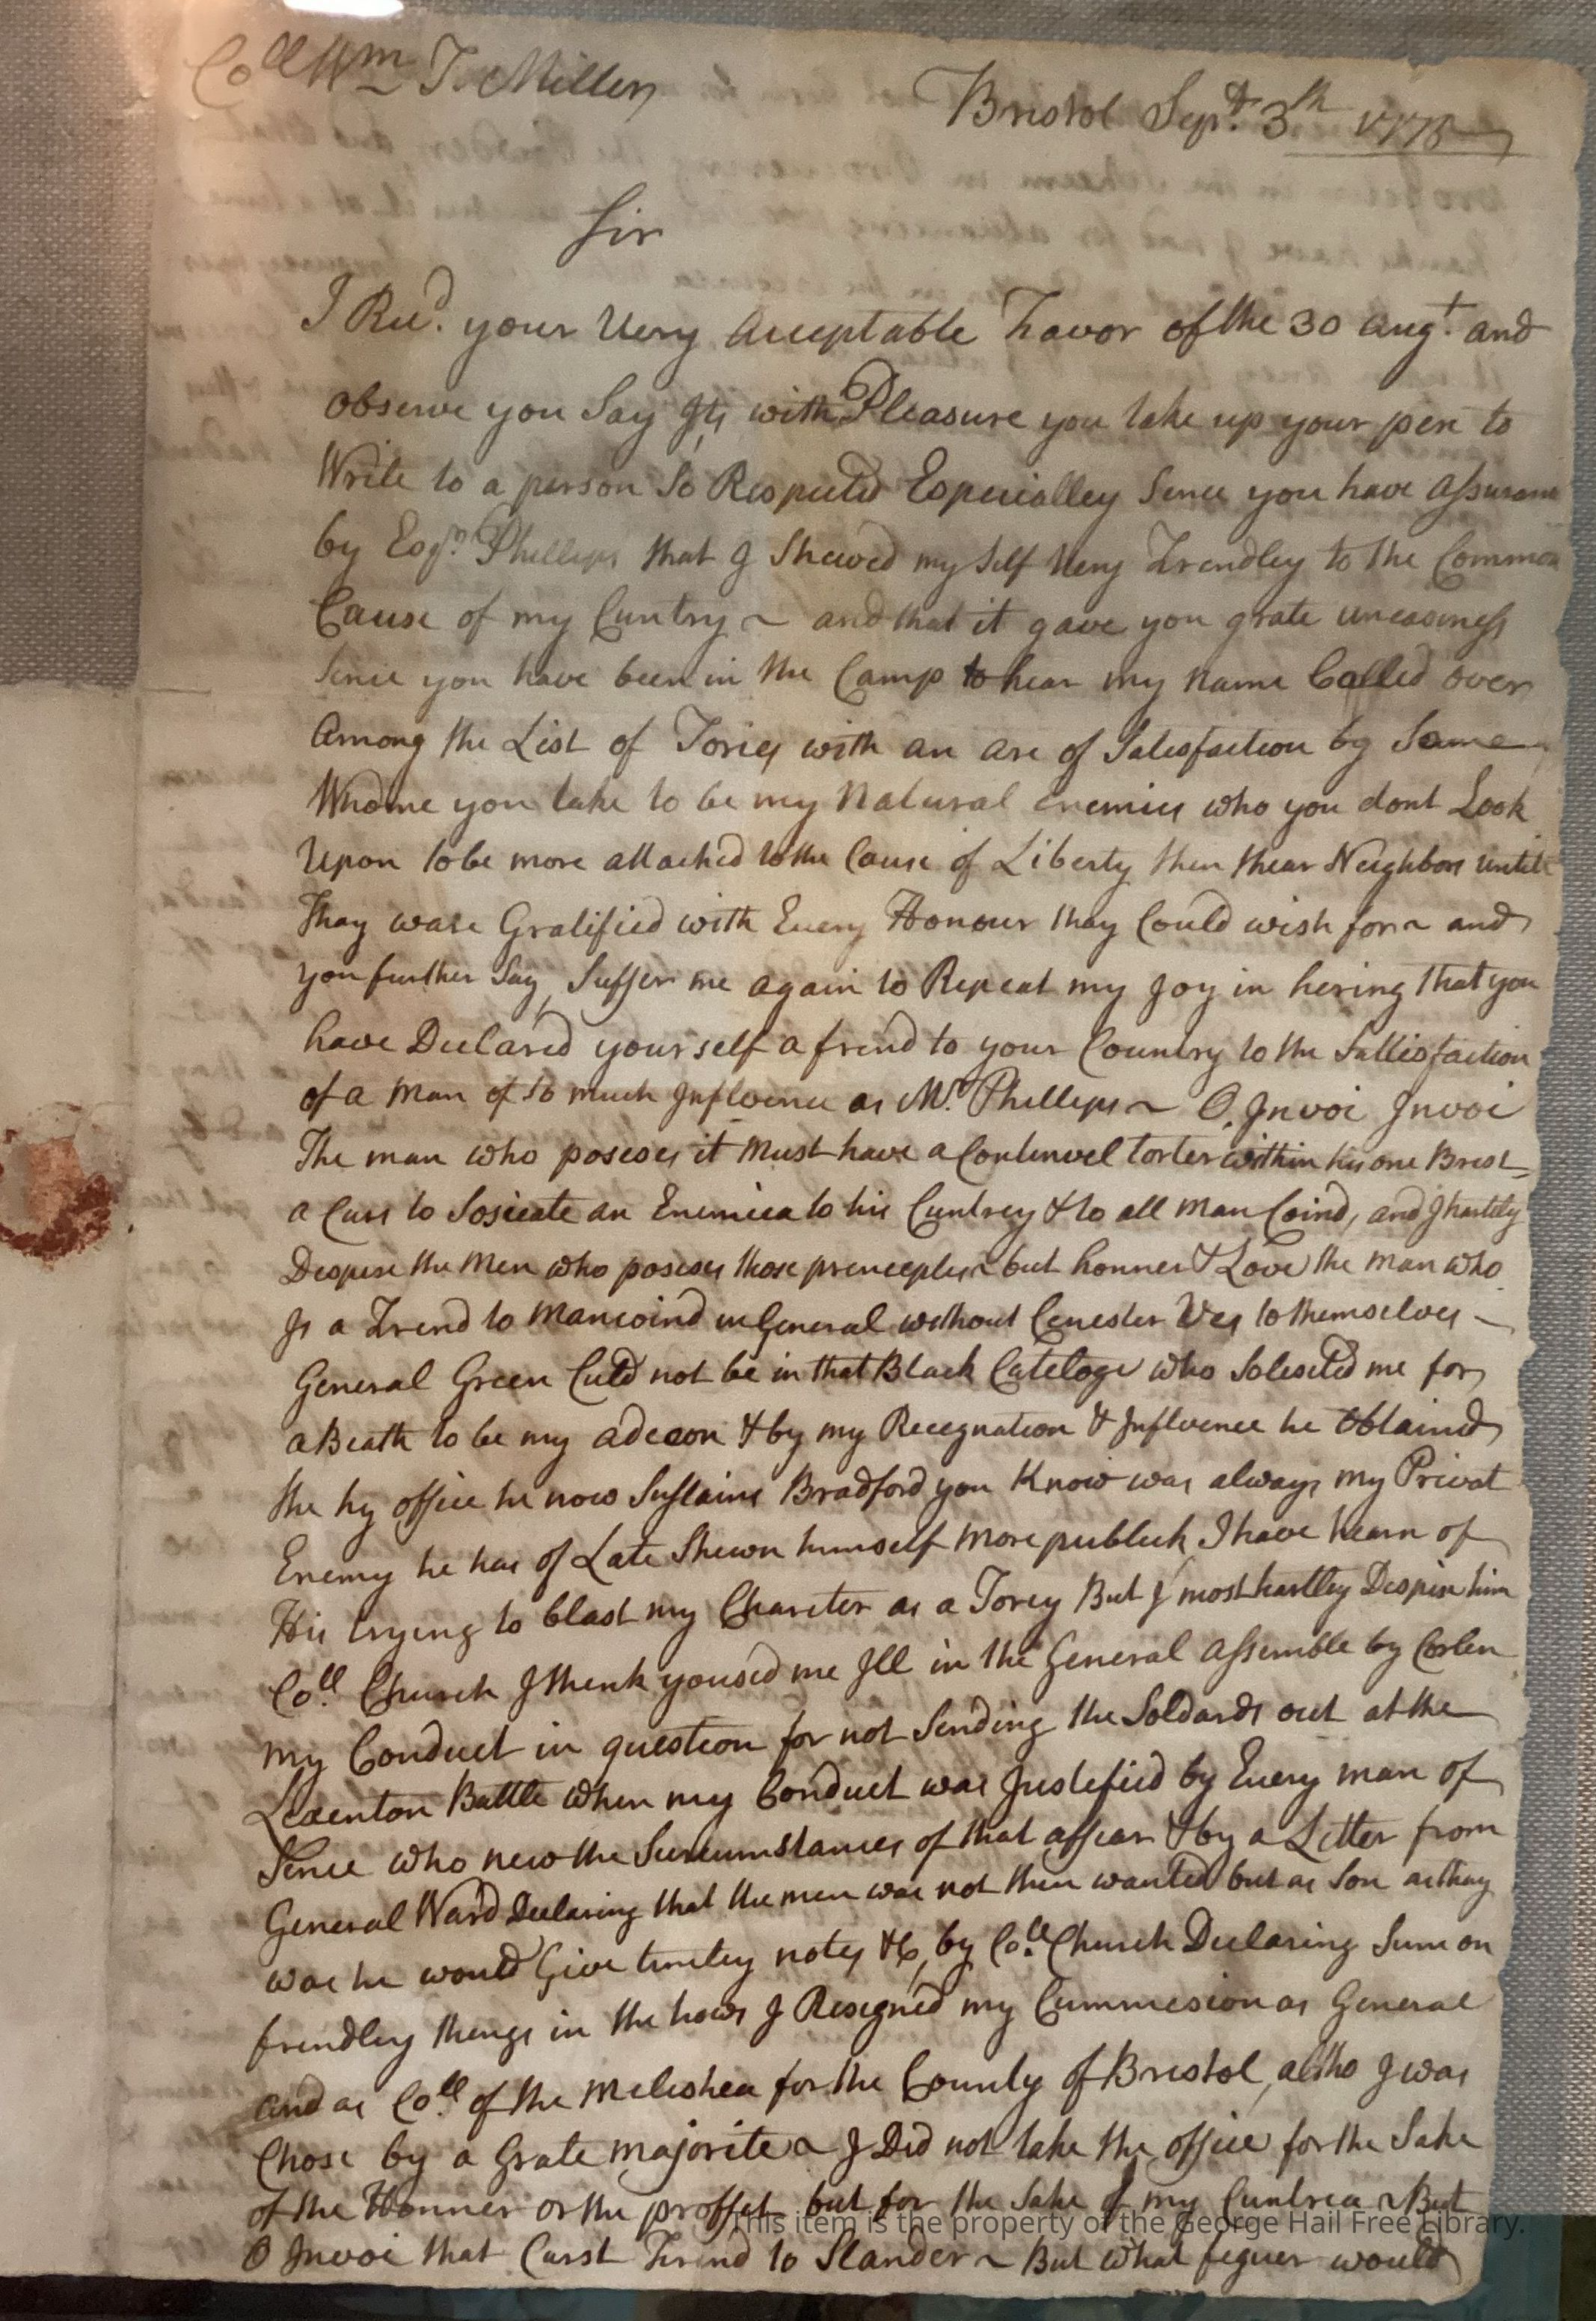 Coll Wm T. Miller
Bristol Sept. 3th 1775
Sir
I Recd. your Very Acceptable Favor of the 30 Augt. and
observe you Say Its with Pleasure you take up your pen to
Write to a person So Respected Especialley Sence you have assurance
by Esqr. Phillips that I Shewed my Self Very Frendley to the Common
Cause of my Cuntry ~ and that it gave you grate uneasiness
Sence you have been in the Camp to hear my name Called over
Among the List of Tories with an are of Satesfaction by Some
Whome you take to be my Natural enemies who you dont Look
Upon to be more attached to the Cause of Liberty then thear Neighbors untill
Thay ware Gratified with Every Honour thay Could wish for ~ and
you further Say, Suffer me again to Repeat my Joy in hering that you
have Declared yourself a frend to your Country to the Sattisfaction
of a Man of So much Influence as Mr. Phillips ~ O, Invoi Invoi
The man who poseses it Must have a Contenvel torter within his one Brest
a Curs to Sosieate an Enemiea to his Cuntrey & to all man Coind, and I hartely
Despise the Men who poseses those prenceples ~ but honner & Love the man who
Is a Frend to Mancoind in General without Cenester Ves to themselves ~
General Green Culd not be in that Black Cateloge who Soleseted me for
a Beath to be my adecon & by my Recegnation & Influence he Obtained
the hy office he now Sustains Bradford you Know was always my Privat
Enemy he has of Late Shewn himself more publeck, I have hearn of
His trying to blast my Charecter as a Torey But I most hartley Despise him
Coll. Church I thenk yoused me Ill in the General Assemble by Corlen
my Conduct in question for not Sending the Soldards out at the
Lexenton Battle when my Conduct was Justefied by Every man of
Sence who new the Surcumstances of that affear & by a Letter from
General Ward Declaring that the men was not then wanted but as Son as thay
was he would Give timley notes &c, by Coll. Church Declaring Sum on
frendley things in the hows I Resigned my Cummesion as General
and as Coll. of the Meleshea for the County of Bristol, altho I was
Chose by a Grate majorite ~ I Did not take the office for the Sake
of the Honner or the proffet but for the Sake of my Cuntrea ~ But
O Invoi that Curst Frend to Slander ~ But what feguer would
This item is the property of the George Hail Free Library.